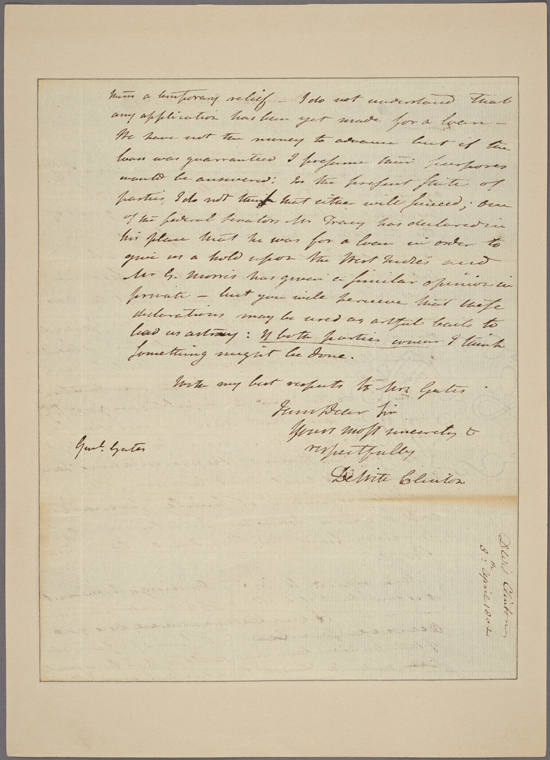 them a temporary relief — I do not understand that
any application has been yet made for a loan —
We have not the money to advance but if the
loan was guaranteed I presume their purposes
would be answered: In the present state of
parties I do not think that either will succeed; one
of the federal Senators Mr Tracy has declared in
his place that he was for a loan in order to
give us a hold upon the West Indies and
Mr G. Morris has given a similar opinion in
private — but you will perceive that these
declarations may be used as artful baits to
lead us astray: If both parties concur I think
something might be done.
With my best respects to Mrs Gates
I am Dear Sir
Yours most sincerely &
respectfully
DeWitt Clinton
Genl. Gates
Dewt Clinton
3d April 1802